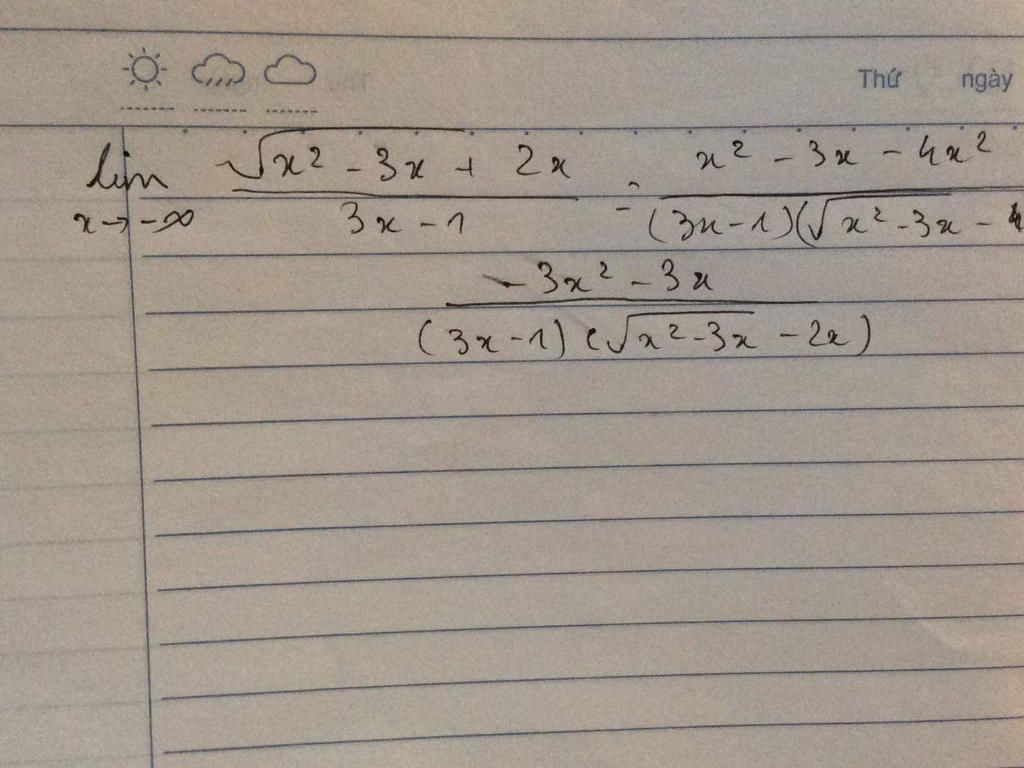 Thứ ngày
lim x→-∞ (√(x² - 3x) + 2x)/(3x - 1) = (x² - 3x - 4x²)/((3x - 1)(√(x² - 3x) -
(-3x² - 3x)/((3x - 1)(√(x² - 3x) - 2x))